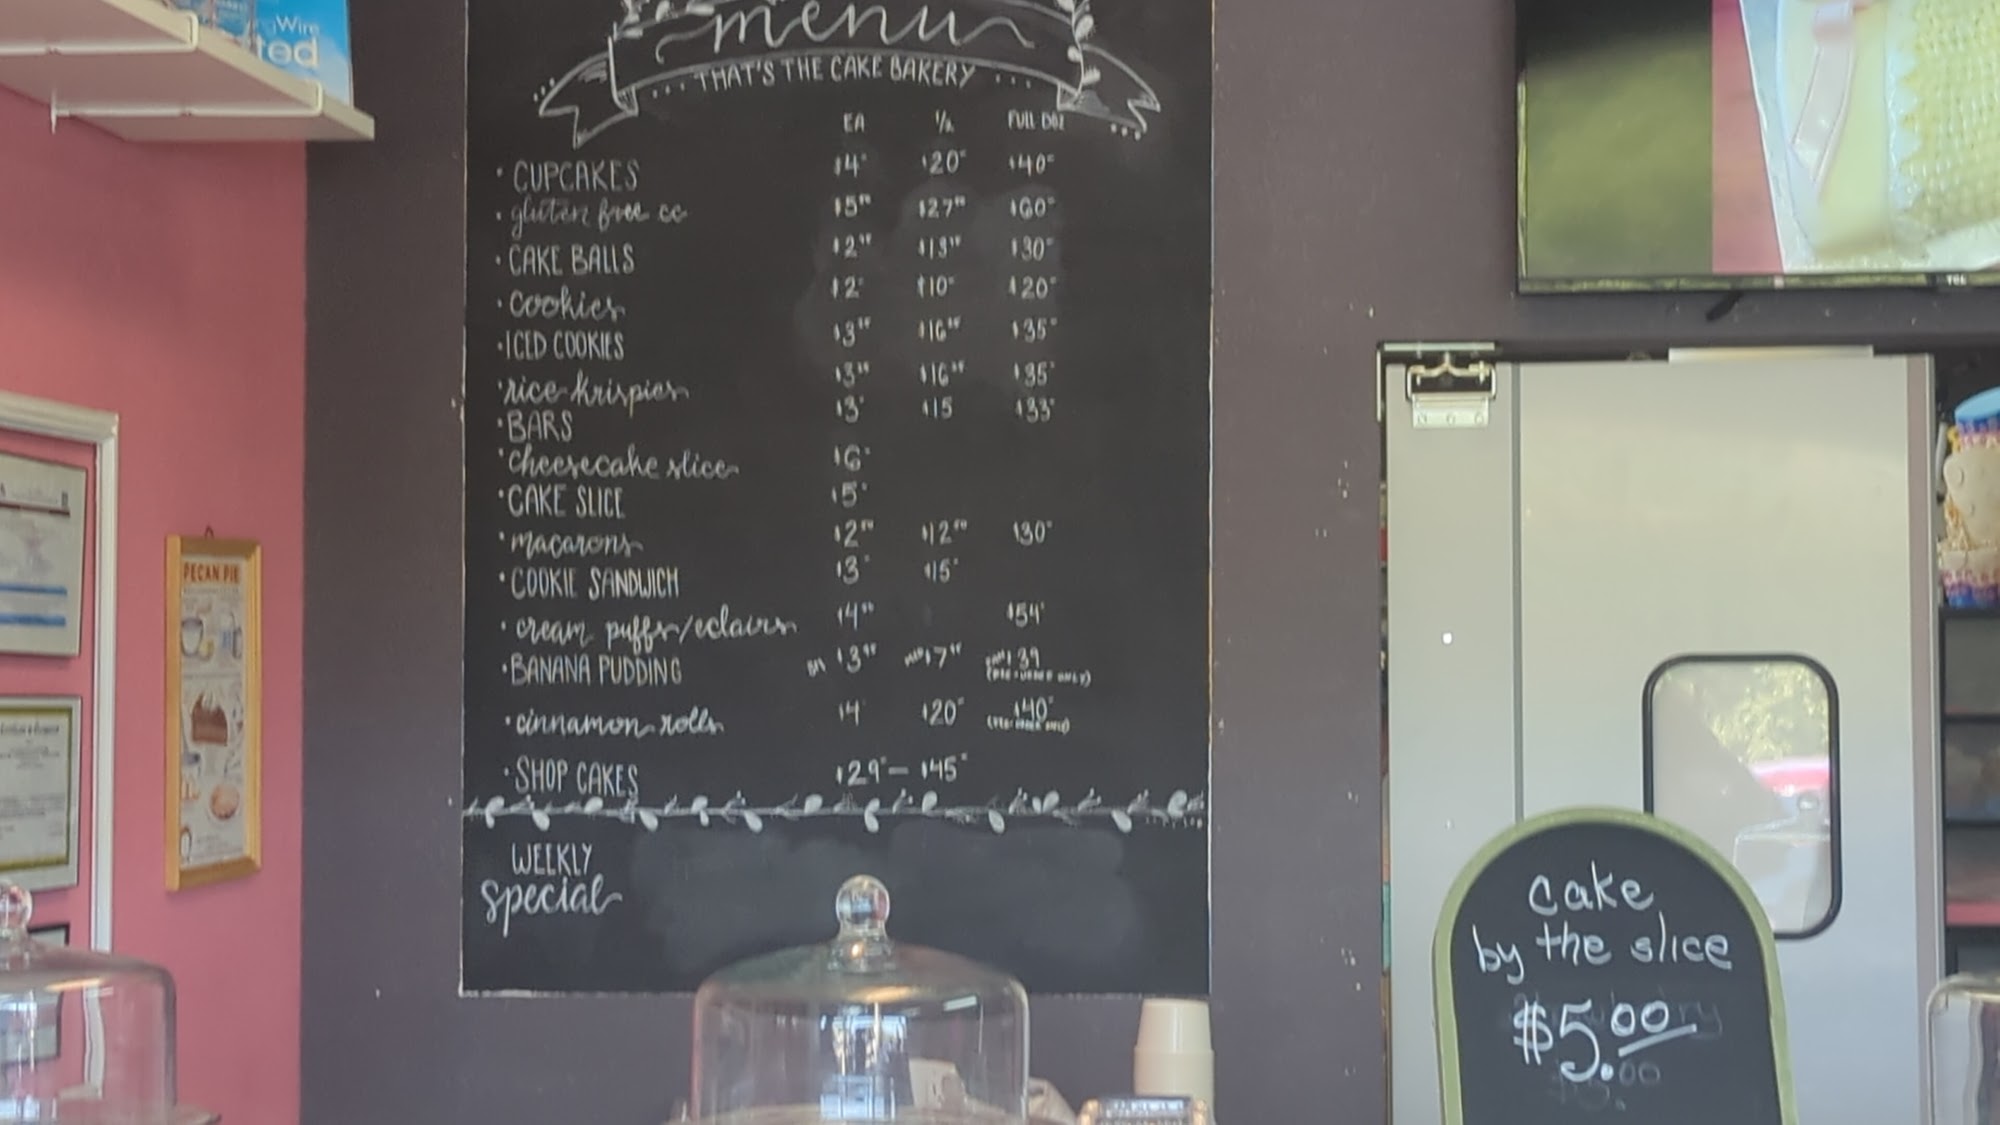 Wire
ted
menu
THAT'S THE CAKE BAKERY
EA 1/2 FULL DOZ
• CUPCAKES $4 $20 $40
• gluten free cc $5 $27 $60
• CAKE BALLS $2 $13 $30
• cookies $2 $10 $20
• ICED COOKIES $3 $16 $35
• rice krispies $3 $16 $35
• BARS $3 $15 $33
• cheesecake slice $6
• CAKE SLICE $5
• macarons $2⁵⁰ $12⁵⁰ $30
• COOKIE SANDWICH $3 $15
• cream puffs/eclairs $4⁵⁰ $54
• BANANA PUDDING $3 $7 39
(PRE-ORDER ONLY)
• cinnamon rolls $4 $20 $40
(PRE-ORDER ONLY)
• SHOP CAKES $29 – $45
WEEKLY
special
PECAN PIE
TCL
cake
by the slice
$5.00